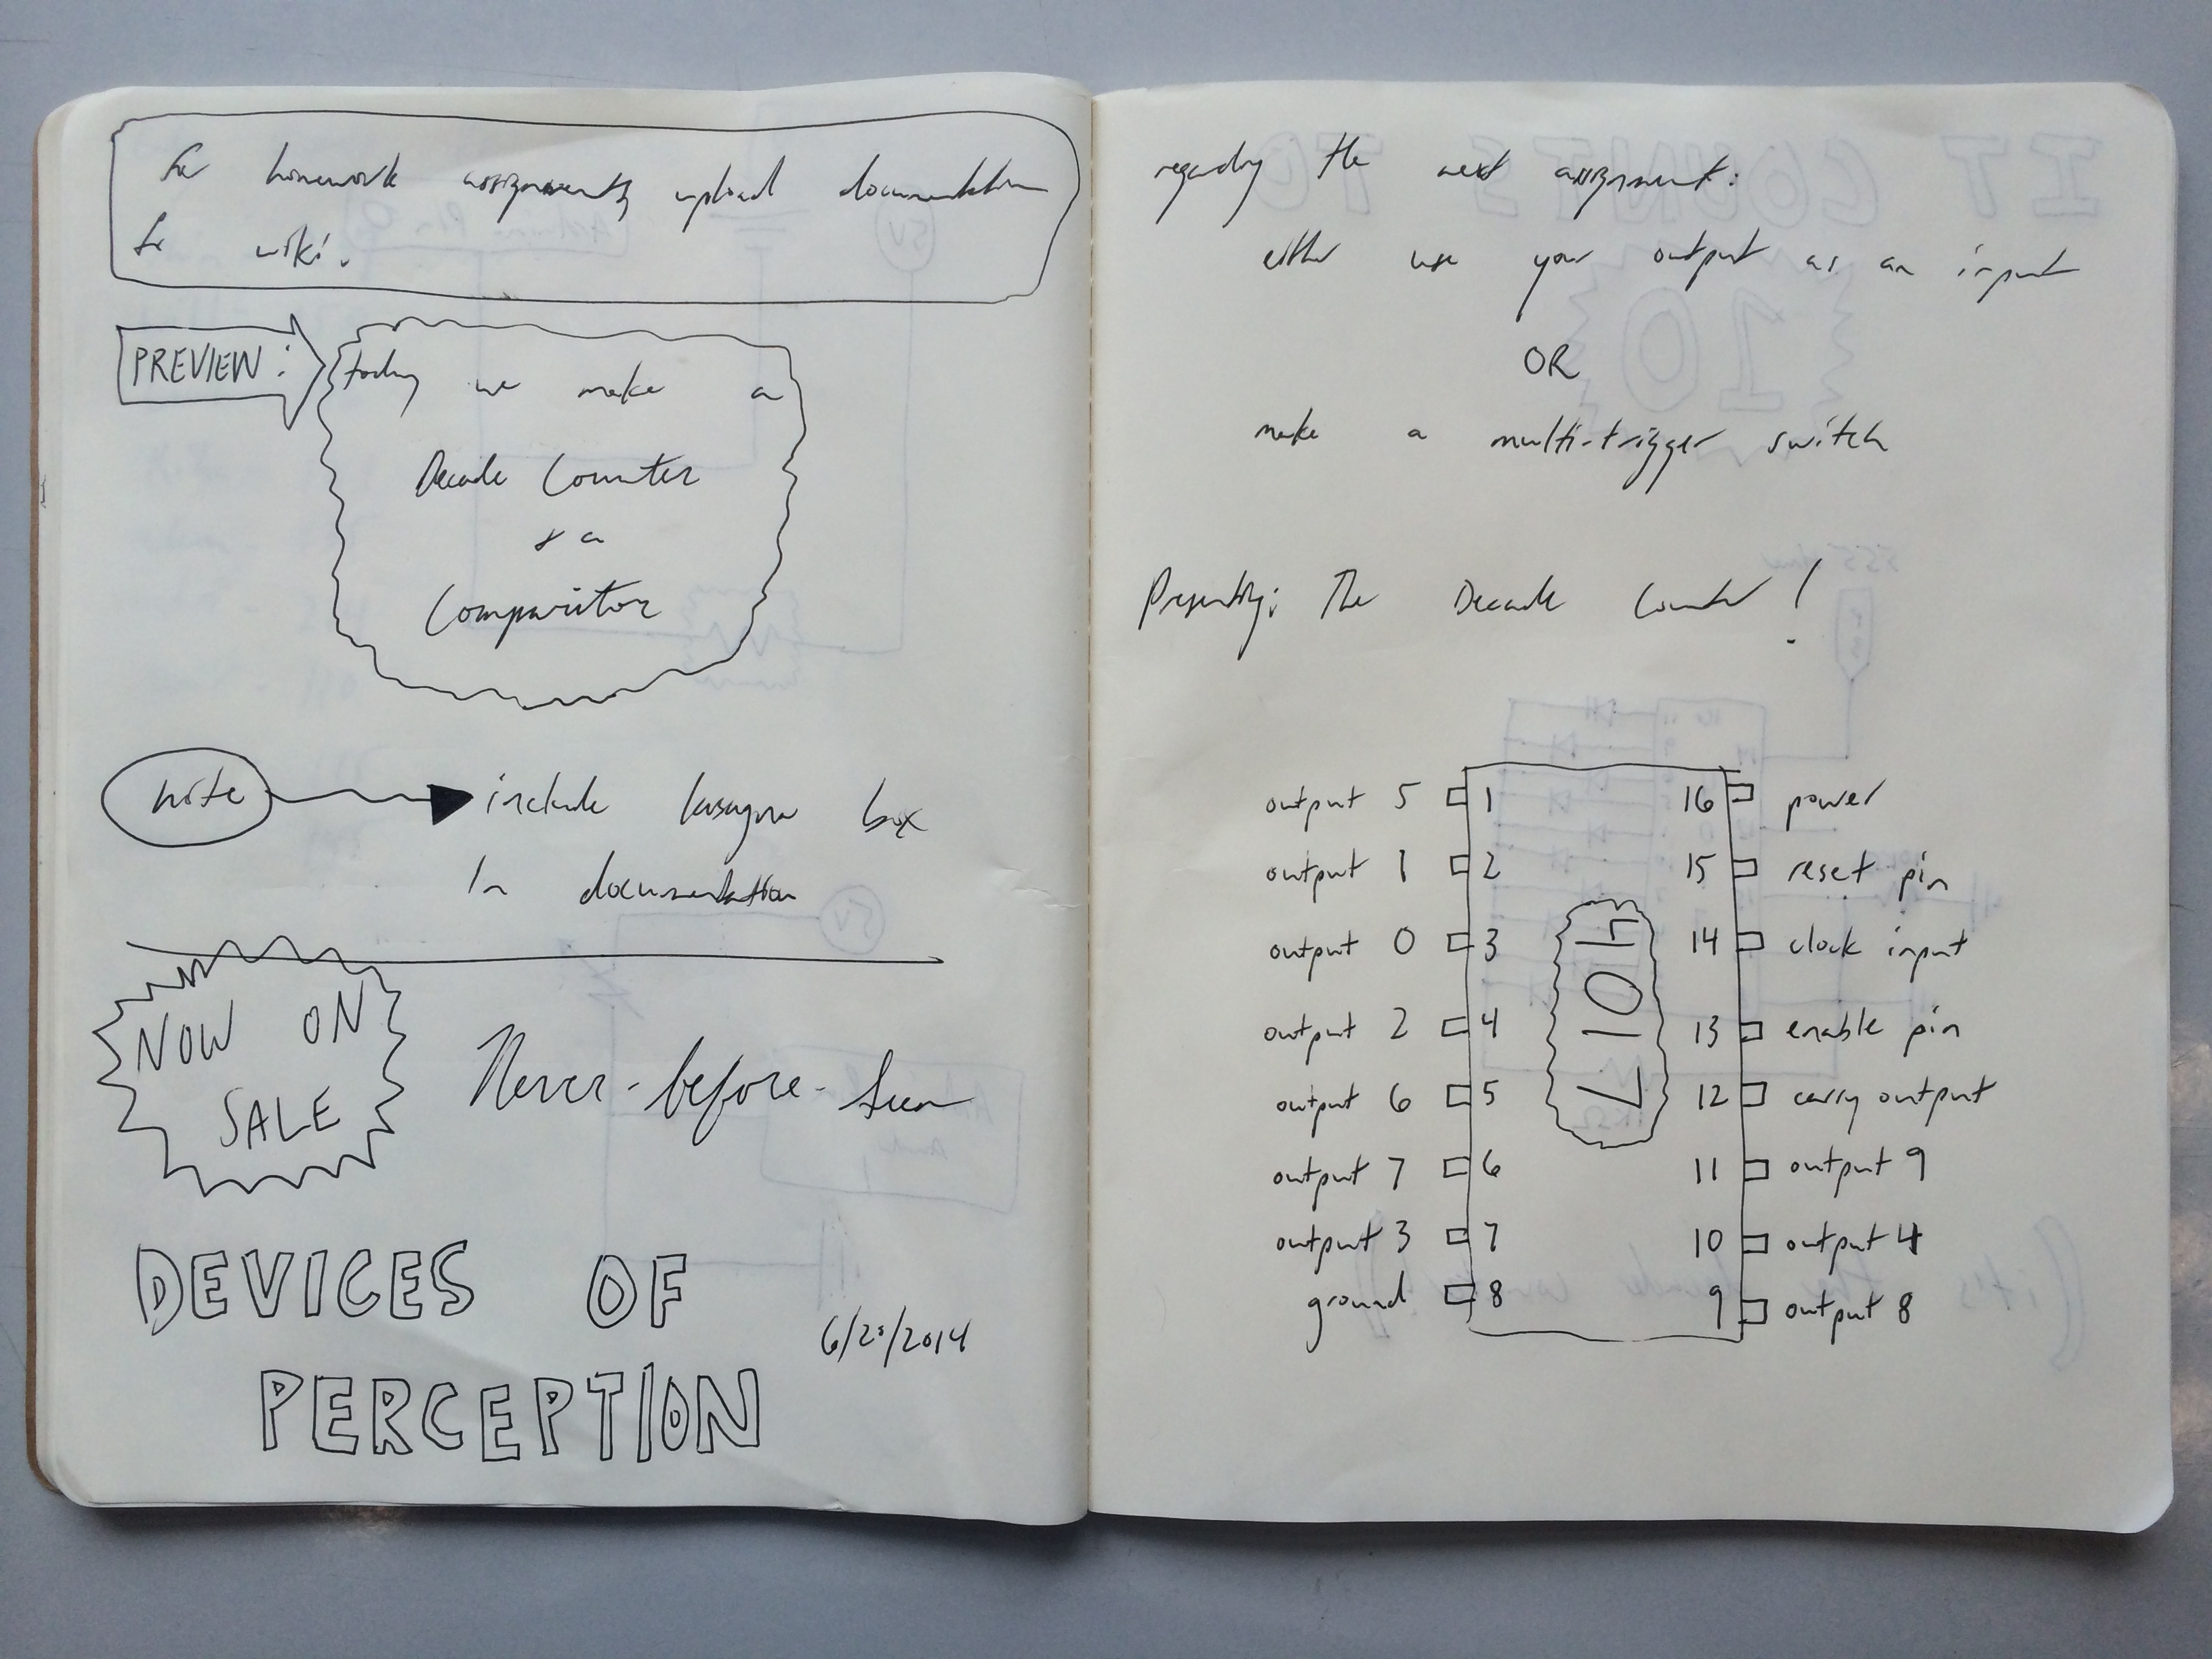 for homework assignments, upload documentation
to wiki.
PREVIEW:
today we make a
Decade Counter
& a
Comparitor
note
include lasagna box
in documentation
NOW ON
SALE
Never-before-seen
DEVICES OF
PERCEPTION
6/25/2014
regarding the next assignment:
either use your output as an input
OR
make a multi-trigger switch
Presenting: The Decade Counter!
4017
output 5 1 16 power
output 1 2 15 reset pin
output 0 3 14 clock input
output 2 4 13 enable pin
output 6 5 12 carry output
output 7 6 11 output 9
output 3 7 10 output 4
ground 8 9 output 8